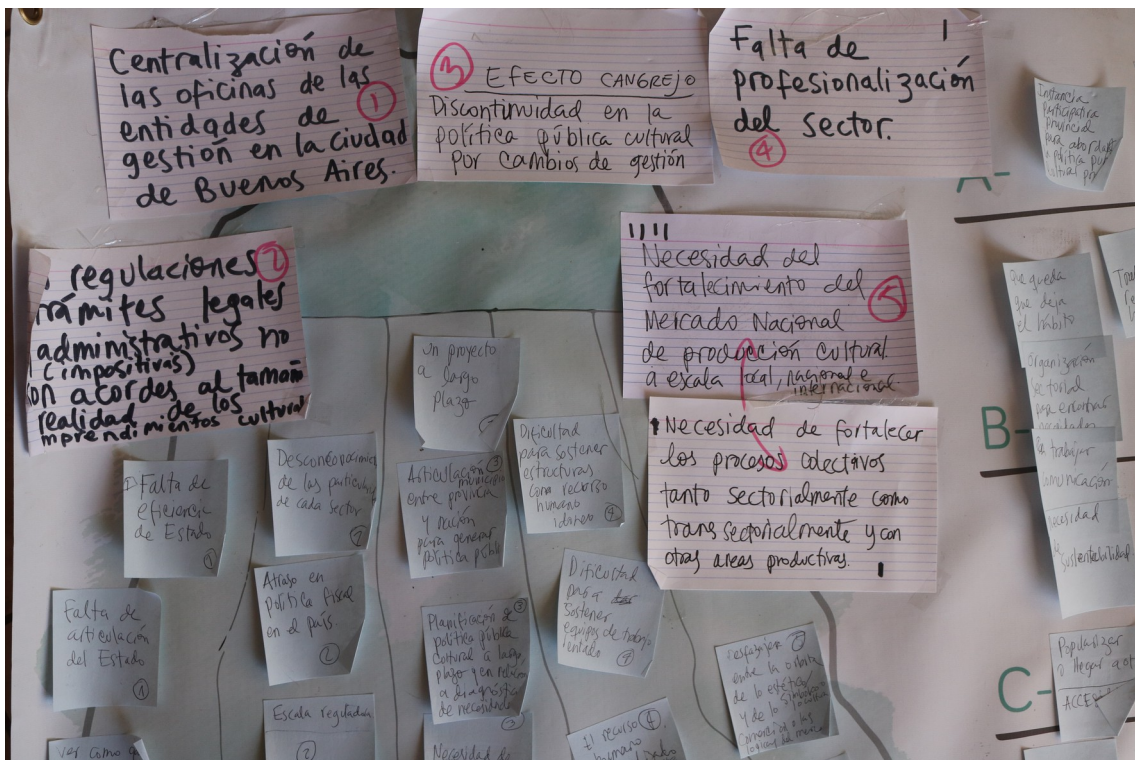 Centralización de
las oficinas de las
entidades de 1
gestión en la ciudad
de Buenos Aires.
3 EFECTO CANGREJO
Discontinuidad en la
política pública cultural
por cambios de gestión
Falta de
profesionalización
del sector.
4
Instancia
participativa
provincial
para abordar
regulaciones 2
trámites legales
administrativos no
(impositivas)
son acordes al tamaño
realidad de los
emprendimientos cultural
Necesidad del
fortalecimiento del 5
Mercado Nacional
de producción cultural
a escala local, nacional e
internacional.
Necesidad de fortalecer
los procesos colectivos
tanto sectorialmente como
transectorialmente y con
otras areas productivas.
Un proyecto
a largo
plazo
Falta de
eficiencia
de Estado
1
de las
de cada sector
2
Articulación 3
municipio
entre provincia
y nación
para generar
política
Dificultad
para sostener
estructuras
con recurso
humano
idóneo 4
Falta de
articulación
del Estado
1
Atraso en
política fiscal
en el país.
2
Planificación de 3
política pública
cultural a largo
plazo y en
a diagnóstico
de necesidades
Dificultad
para
sostener
equipos de trabajo
rentado
4
5
entre la órbita
de lo estético
y de lo
Escala
2
ver como
3
Necesidad de
El recurso 4
humano
A-
B-
C-
Que queda
que deja
el hábito
Organización
sectorial
para encontrar
trabajar
comunicación
Necesidad
sustentabilidad
Popularizar
o llegar a
ACCESO